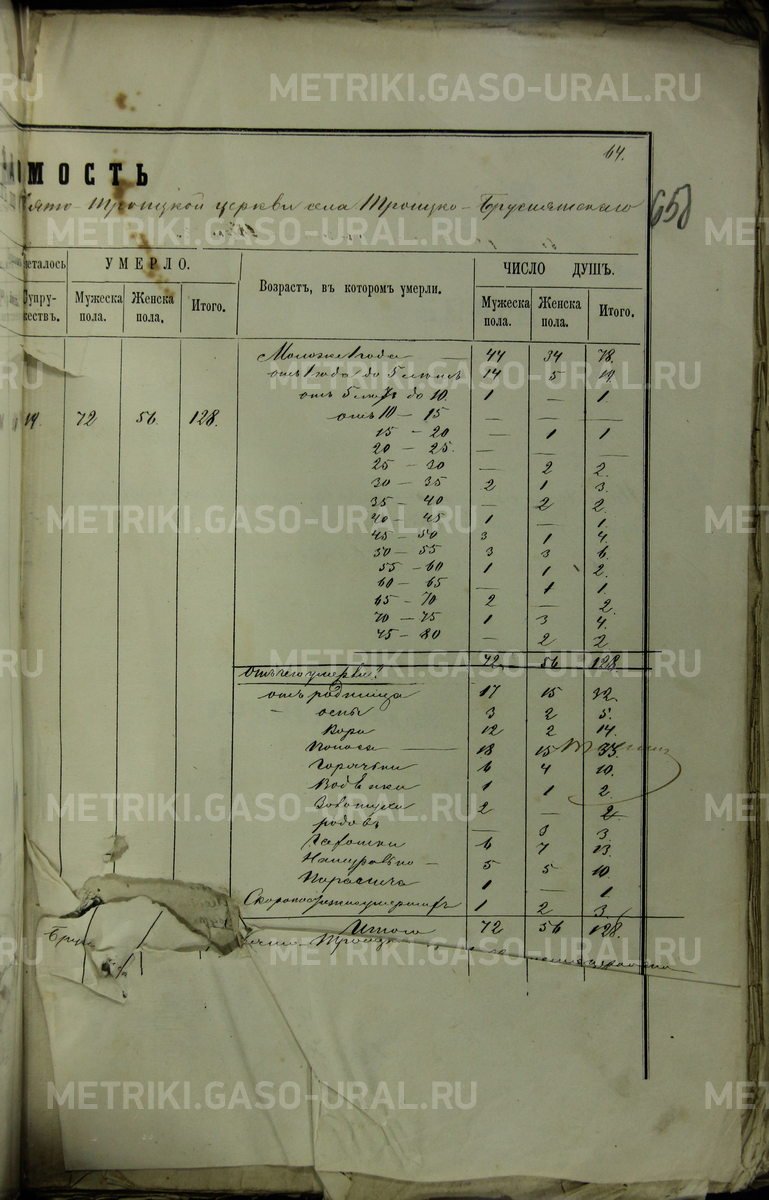 METRIKI.GASO-URAL.RU
64.
МОСТЬ
Троицкой церкви села Троицко-Бруснятскаго
650
талось
УМЕРЛО.
Возрастъ, въ которомъ умерли.
ЧИСЛО ДУШЪ.
Супружествъ.
Мужеска пола.
Женска пола.
Итого.
Мужеска пола.
Женска пола.
Итого.
Моложе 1 года 44 34 78.
отъ 1 года до 5 лѣтъ 14 5 19
отъ 5 до 10. 1 — 1
19. 72 56 128.
отъ 10 — 15 — — —
15 — 20 — 1 1
20 — 25. — — —
25 — 30 — 2 2.
30 — 35 2 1 3.
35 — 40 — 2 2.
40 — 45 1 — 1.
45 — 50 3 1 4.
50 — 55 3 3 6.
55 — 60 1 1 2.
60 — 65 — 1 1.
65 — 70 2 — 2.
70 — 75 1 3 4.
75 — 80 — 2 2
72 56 128
отъ чего умерли?
отъ родимца 17 15 32.
— оспы 3 2 5.
Кори 12 2 14.
Поноса 18 15 33.
Горячки 6 4 10.
Водянки 1 1 2.
2 — 2
родовъ — 3 3.
Чахотки 6 7 13.
Натурально — 5 5 10.
1 — 1
Скоропостижно 1 2 3
Итого 72 56 128.